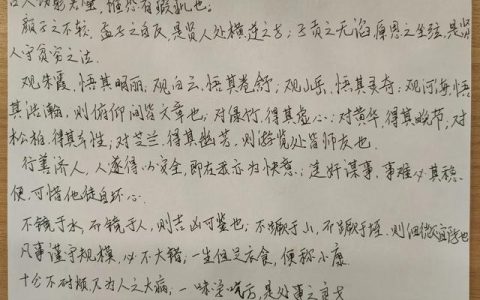 颜子之不较,孟子之自反,是贤人处横逆之方;子贡之无谄,原思之坐弦,是贤
人守贫穷之法.
观朱霞,悟其明丽;观白云,悟其卷舒;观山岳,悟其灵奇;观河海,悟
其浩瀚,则俯仰间皆文章也;对绿竹,得其虚心;对黄华,得其晚节,对
松柏,得其本性;对芝兰,得其幽芳,则游览处皆师友也.
行善济人,人遂得以安全,即在我亦为快意;逞奸谋事,事难必其稳
便,可惜他徒自坏心.
不镜于水,而镜于人,则吉凶可鉴也;不蹶于山,而蹶于垤,则细微宜防也
凡事谨守规模,必不大错;一生但足衣食,便称小康
十分不耐烦,乃为人之大病;一味学吃亏,是处事之良方